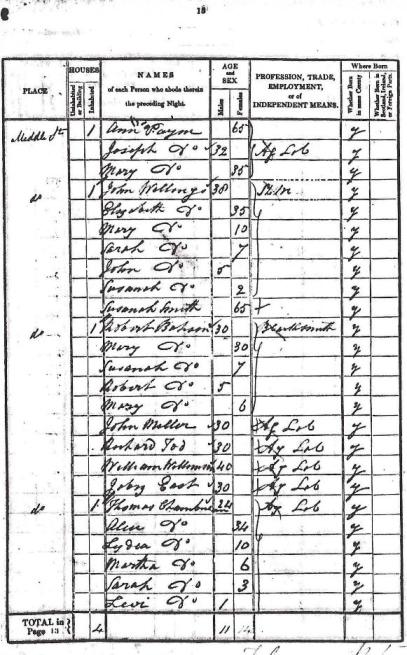 13
PLACE HOUSES Uninhabited or Building Inhabited NAMES of each Person who abode therein the preceding Night. AGE and SEX Males Females PROFESSION, TRADE, EMPLOYMENT, or of INDEPENDENT MEANS. Where Born Whether Born in same County Whether Born in Scotland, Ireland, or Foreign Parts.
Middle St 1 Ann Payn 65 y
Joseph Do 32 Ag Lob y
Mary Do 35 y
do 1 John 38 y
Elizabeth Do 35 y
Mary Do 10 y
Sarah Do 7 y
John Do 5 y
Susanah Do 2 y
Susanah Smith 65 y
do 1 Robert 30 Blacksmith y
Mary Do 30 y
Susanah Do 7 y
Robert Do 5 y
Mary Do 6 y
John Miller 30 Ag Lob y
Richard Tod 30 Ag Lob y
William 40 Ag Lob y
East 30 Ag Lob y
do 1 Thomas 24 Ag Lob y
Do 34 y
Lydea Do 10 y
Martha Do 6 y
Sarah Do 3 y
Levi Do 1 y
TOTAL in Page 13 4 11 14